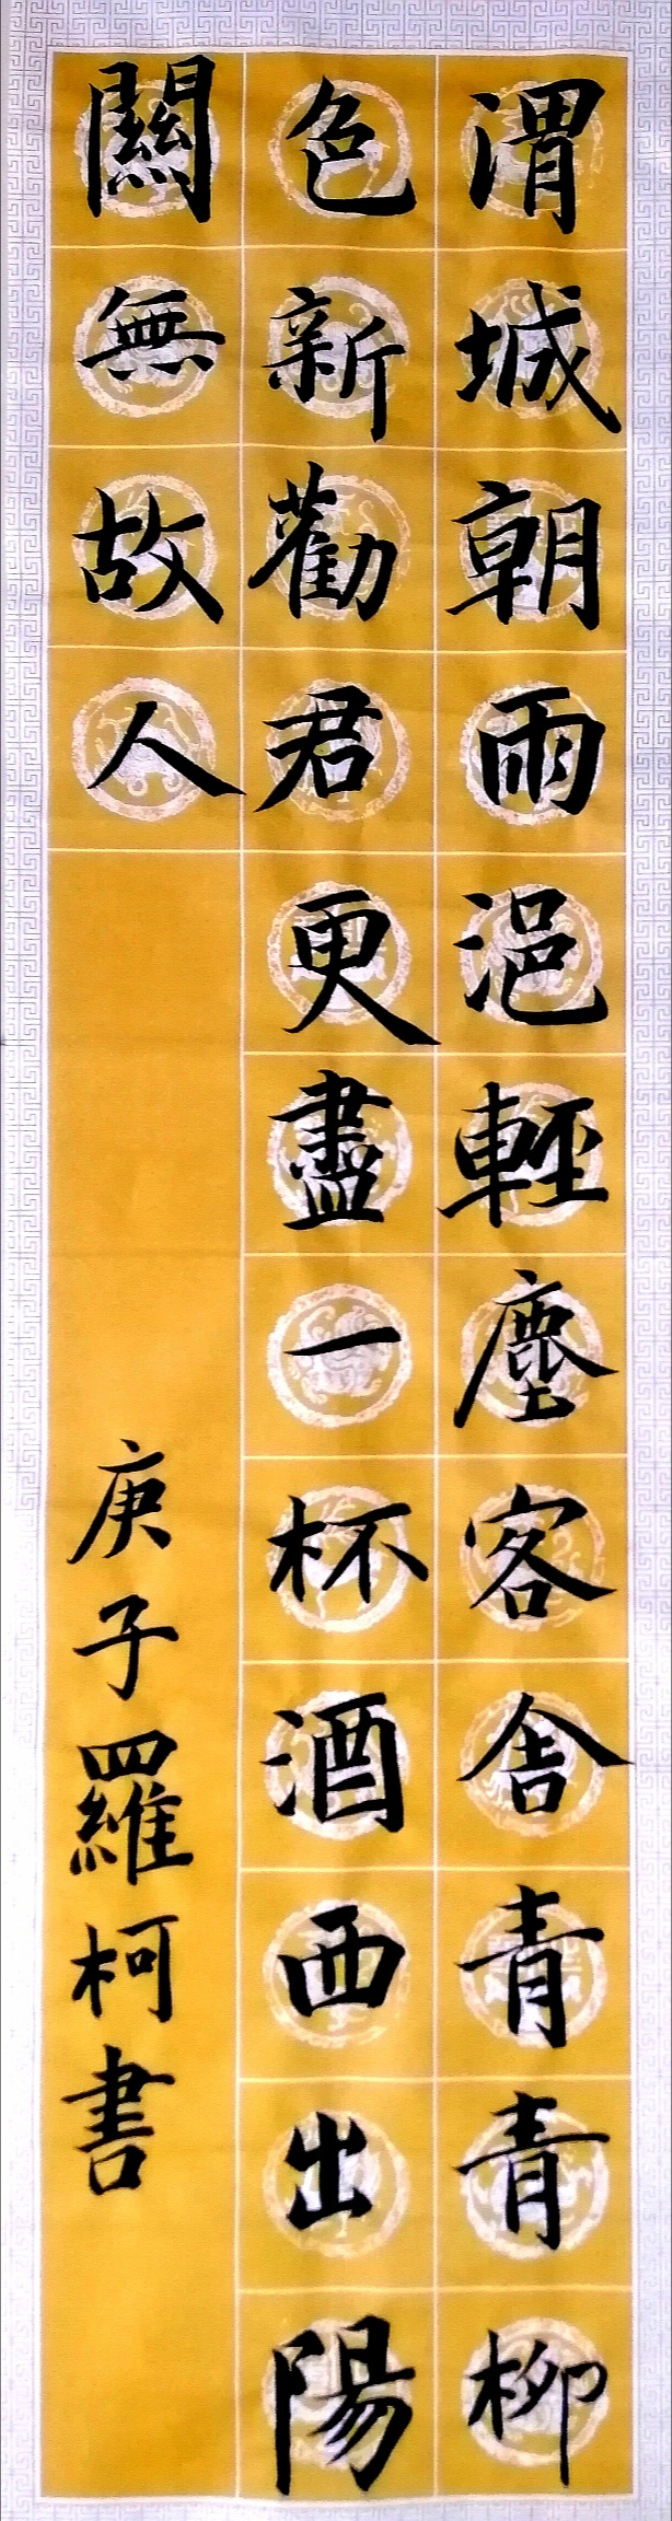 渭城朝雨浥輕塵客舍青青柳
色新勸君更盡一杯酒西出陽
關無故人
庚子羅柯書